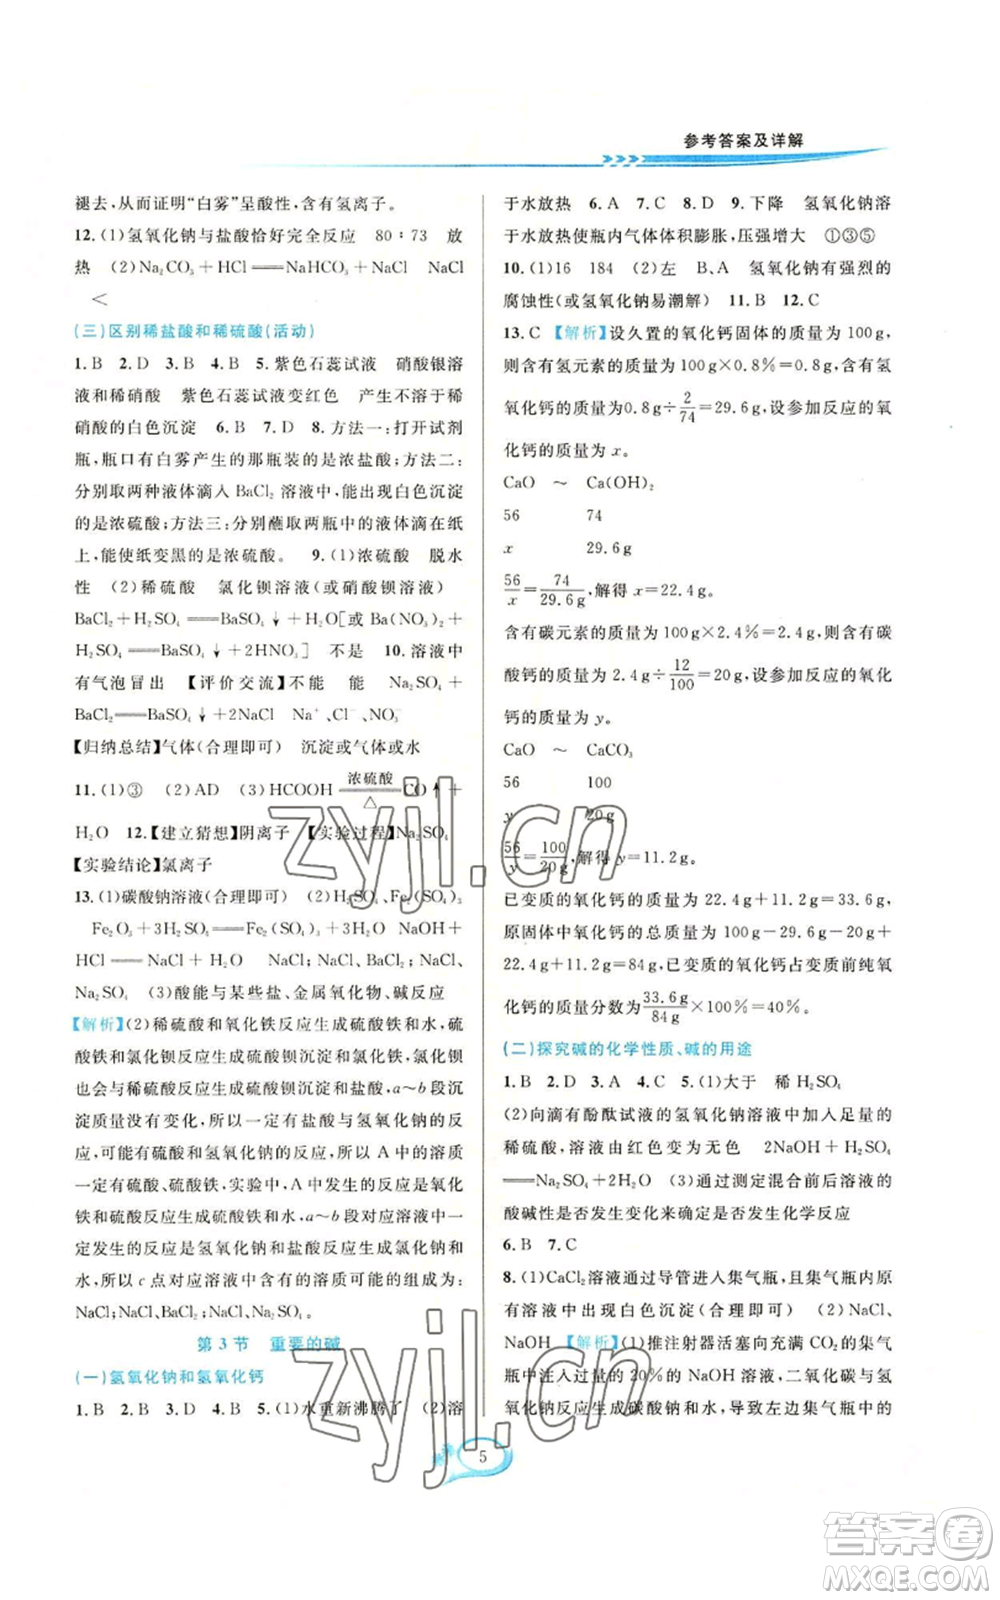 参考答案及详解
褪去,从而证明“白雾”呈酸性,含有氢离子。
12.(1)氢氧化钠与盐酸恰好完全反应 80∶73 放
热 (2)Na₂CO₃+HCl══NaHCO₃+NaCl NaCl
<
(三)区别稀盐酸和稀硫酸(活动)
1.B 2.D 3.B 4.B 5.紫色石蕊试液 硝酸银溶
液和稀硝酸 紫色石蕊试液变红色 产生不溶于稀
硝酸的白色沉淀 6.B 7.D 8.方法一:打开试剂
瓶,瓶口有白雾产生的那瓶装的是浓盐酸;方法二:
分别取两种液体滴入 BaCl₂ 溶液中,能出现白色沉淀
的是浓硫酸;方法三:分别蘸取两瓶中的液体滴在纸
上,能使纸变黑的是浓硫酸。 9.(1)浓硫酸 脱水
性 (2)稀硫酸 氯化钡溶液(或硝酸钡溶液)
BaCl₂+H₂SO₄══BaSO₄↓+2HCl[或 Ba(NO₃)₂+
H₂SO₄══BaSO₄↓+2HNO₃] 不是 10.溶液中
有气泡冒出 【评价交流】不能 能 Na₂SO₄+
BaCl₂══BaSO₄↓+2NaCl Na⁺、Cl⁻、NO₃⁻
【归纳总结】气体(合理即可) 沉淀或气体或水
11.(1)③ (2)AD (3)HCOOH ══浓硫酸 △ CO↑+
H₂O 12.【建立猜想】阴离子 【实验过程】Na₂SO₄
【实验结论】氯离子
13.(1)碳酸钠溶液(合理即可) (2)H₂SO₄、Fe₂(SO₄)₃
Fe₂O₃+3H₂SO₄══Fe₂(SO₄)₃+3H₂O NaOH+
HCl══NaCl+H₂O NaCl;NaCl、BaCl₂;NaCl、
Na₂SO₄ (3)酸能与某些盐、金属氧化物、碱反应
【解析】(2)稀硫酸和氧化铁反应生成硫酸铁和水,硫
酸铁和氯化钡反应生成硫酸钡沉淀和氯化铁,氯化钡
也与稀硫酸反应生成硫酸钡沉淀和盐酸,a~b 段沉
淀质量没有变化,所以一定有盐酸与氢氧化钠的反
应,所以一定有盐酸和氢氧化钠的反应,所以 A 中的溶质
一定有硫酸、硫酸铁,实验中,A 中发生的反应是氧化
铁和硫酸反应生成硫酸铁和水,a~b 段对应溶液中一
定发生的反应是氢氧化钠和盐酸反应生成氯化钠和水
,所以 c 点对应溶液中的溶质可能的组成为:
NaCl;NaCl、BaCl₂;NaCl、Na₂SO₄。
第3节 重要的碱
(一)氢氧化钠和氢氧化钙
1.B 2.B 3.D 4.B 5.(1)水重新沸腾了 (2)溶
于水放热 6.A 7.D 8.D 9.下降 氢氧化钠溶
于水放热使瓶内气体体积膨胀,压强增大 ①③⑤
10.(1)16 184 (2)左 B、A 氢氧化钠有强烈的
腐蚀性(或氢氧化钠易潮解) 11.B 12.C
13.C 【解析】设久置的氧化钙固体的质量为 100g,
则含有氢元素的质量为 100g×0.8%=0.8g,氢
氧化钙的质量为0.8g÷2/74=29.6g,设参加反应的氧
化钙的质量为 x。
CaO ~ Ca(OH)₂
56 74
x 29.6g
56/x=74/29.6g,解得 x=22.4g。
含有碳元素的质量为100g×2.4%=2.4g,则碳
酸钙的质量为 2.4g÷12/100=20g,设参加反应的氧化
钙的质量为 y。
CaO ~ CaCO₃
56 100
y 20g
56/y=100/20g,解得 y=11.2g。
已变质的氧化钙的质量为22.4g+11.2g=33.6g,
原固体中氧化钙的总质量为 100g-29.6g-20g+
22.4g+11.2g=84g,已变质的氧化钙占变质前纯氧
化钙的质量分数为33.6g/84g×100%=40%。
(二)探究碱的化学性质、碱的用途
1.B 2.D 3.A 4.C 5.(1)大于 稀 H₂SO₄
(2)向滴有酚酞试液的氢氧化钠溶液中加入足量的
稀硫酸,溶液由红色变为无色 2NaOH+H₂SO₄
══Na₂SO₄+2H₂O (3)通过测定混合前后溶液的
酸碱性是否发生变化来确定是否发生化学反应
6.B 7.C
8.(1)CaCl₂溶液通过导管进入集气瓶,且集气瓶内原
有溶液中出现白色沉淀(合理即可) (2)NaCl、
NaOH 【解析】(1)推注射器活塞向充满 CO₂的集气
瓶中注入过量的 20%的NaOH溶液,二氧化碳与氢
氧化钠反应生成碳酸钠和水,导致左边集气瓶中的
5
zyjl.cn
zyjl.cn
答案圈
MXQE.COM